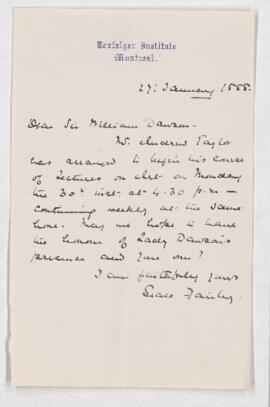 Trafalgar Institute
Montreal.
27: January 1888.
Dear Sir William Dawson.
Mr. Andrew Taylor
has arranged to begin his course
of lectures on Art on Monday
the 30th inst. at 4.30 p.m. —
continuing weekly at the same
hour. May we hope to have
the honour of Lady Dawson's
presence and your own?
I am faithfully yours
Grace Fairley.